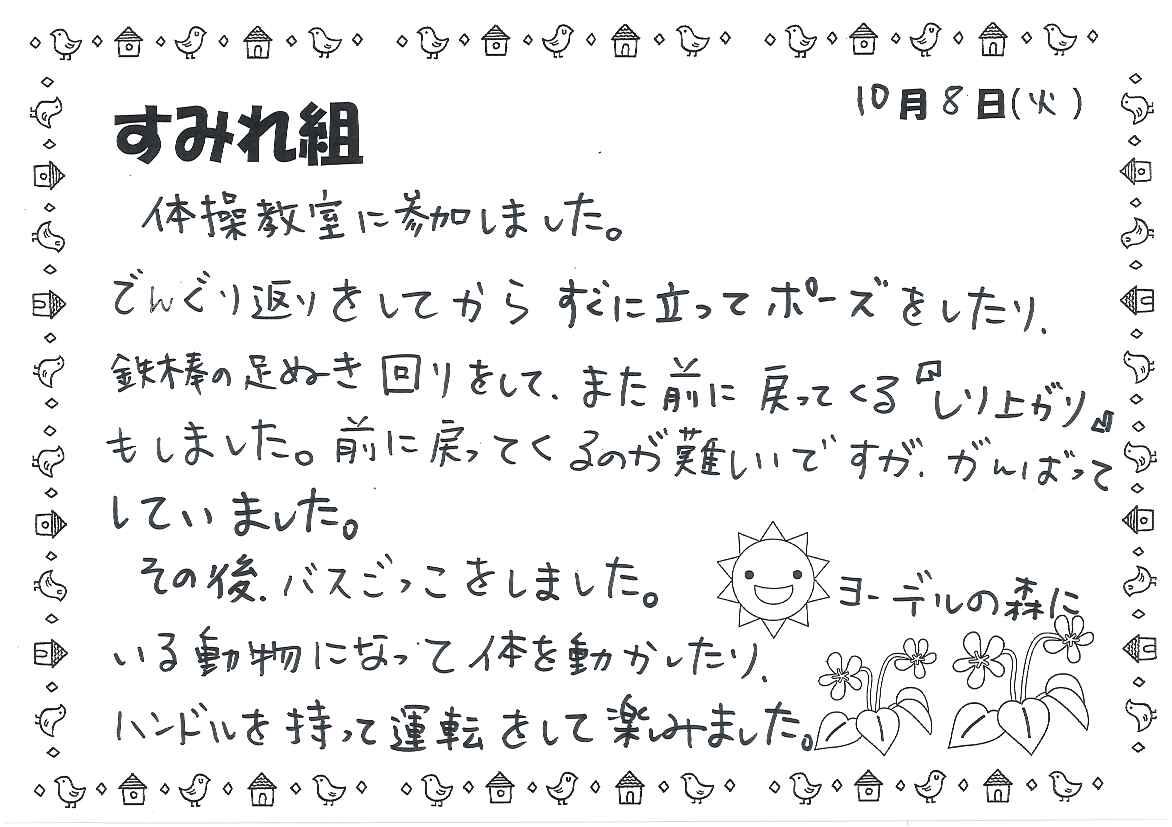 すみれ組
10月8日(火)
体操教室に参加しました。
でんぐり返りをしてからすぐに立ってポーズをしたり、
鉄棒の足ぬき回りをして、また前に戻ってくる『しり上がり』
もしました。前に戻ってくるのが難しいですが、がんばって
していました。
その後、バスごっこをしました。ヨーデルの森に
いる動物になって体を動かしたり、
ハンドルを持って運転をして楽しみました。